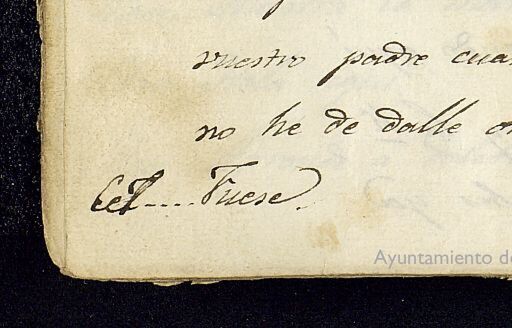 vuestro padre cua
no he de dalle o
Cel.... Fuese.
Ayuntamiento de